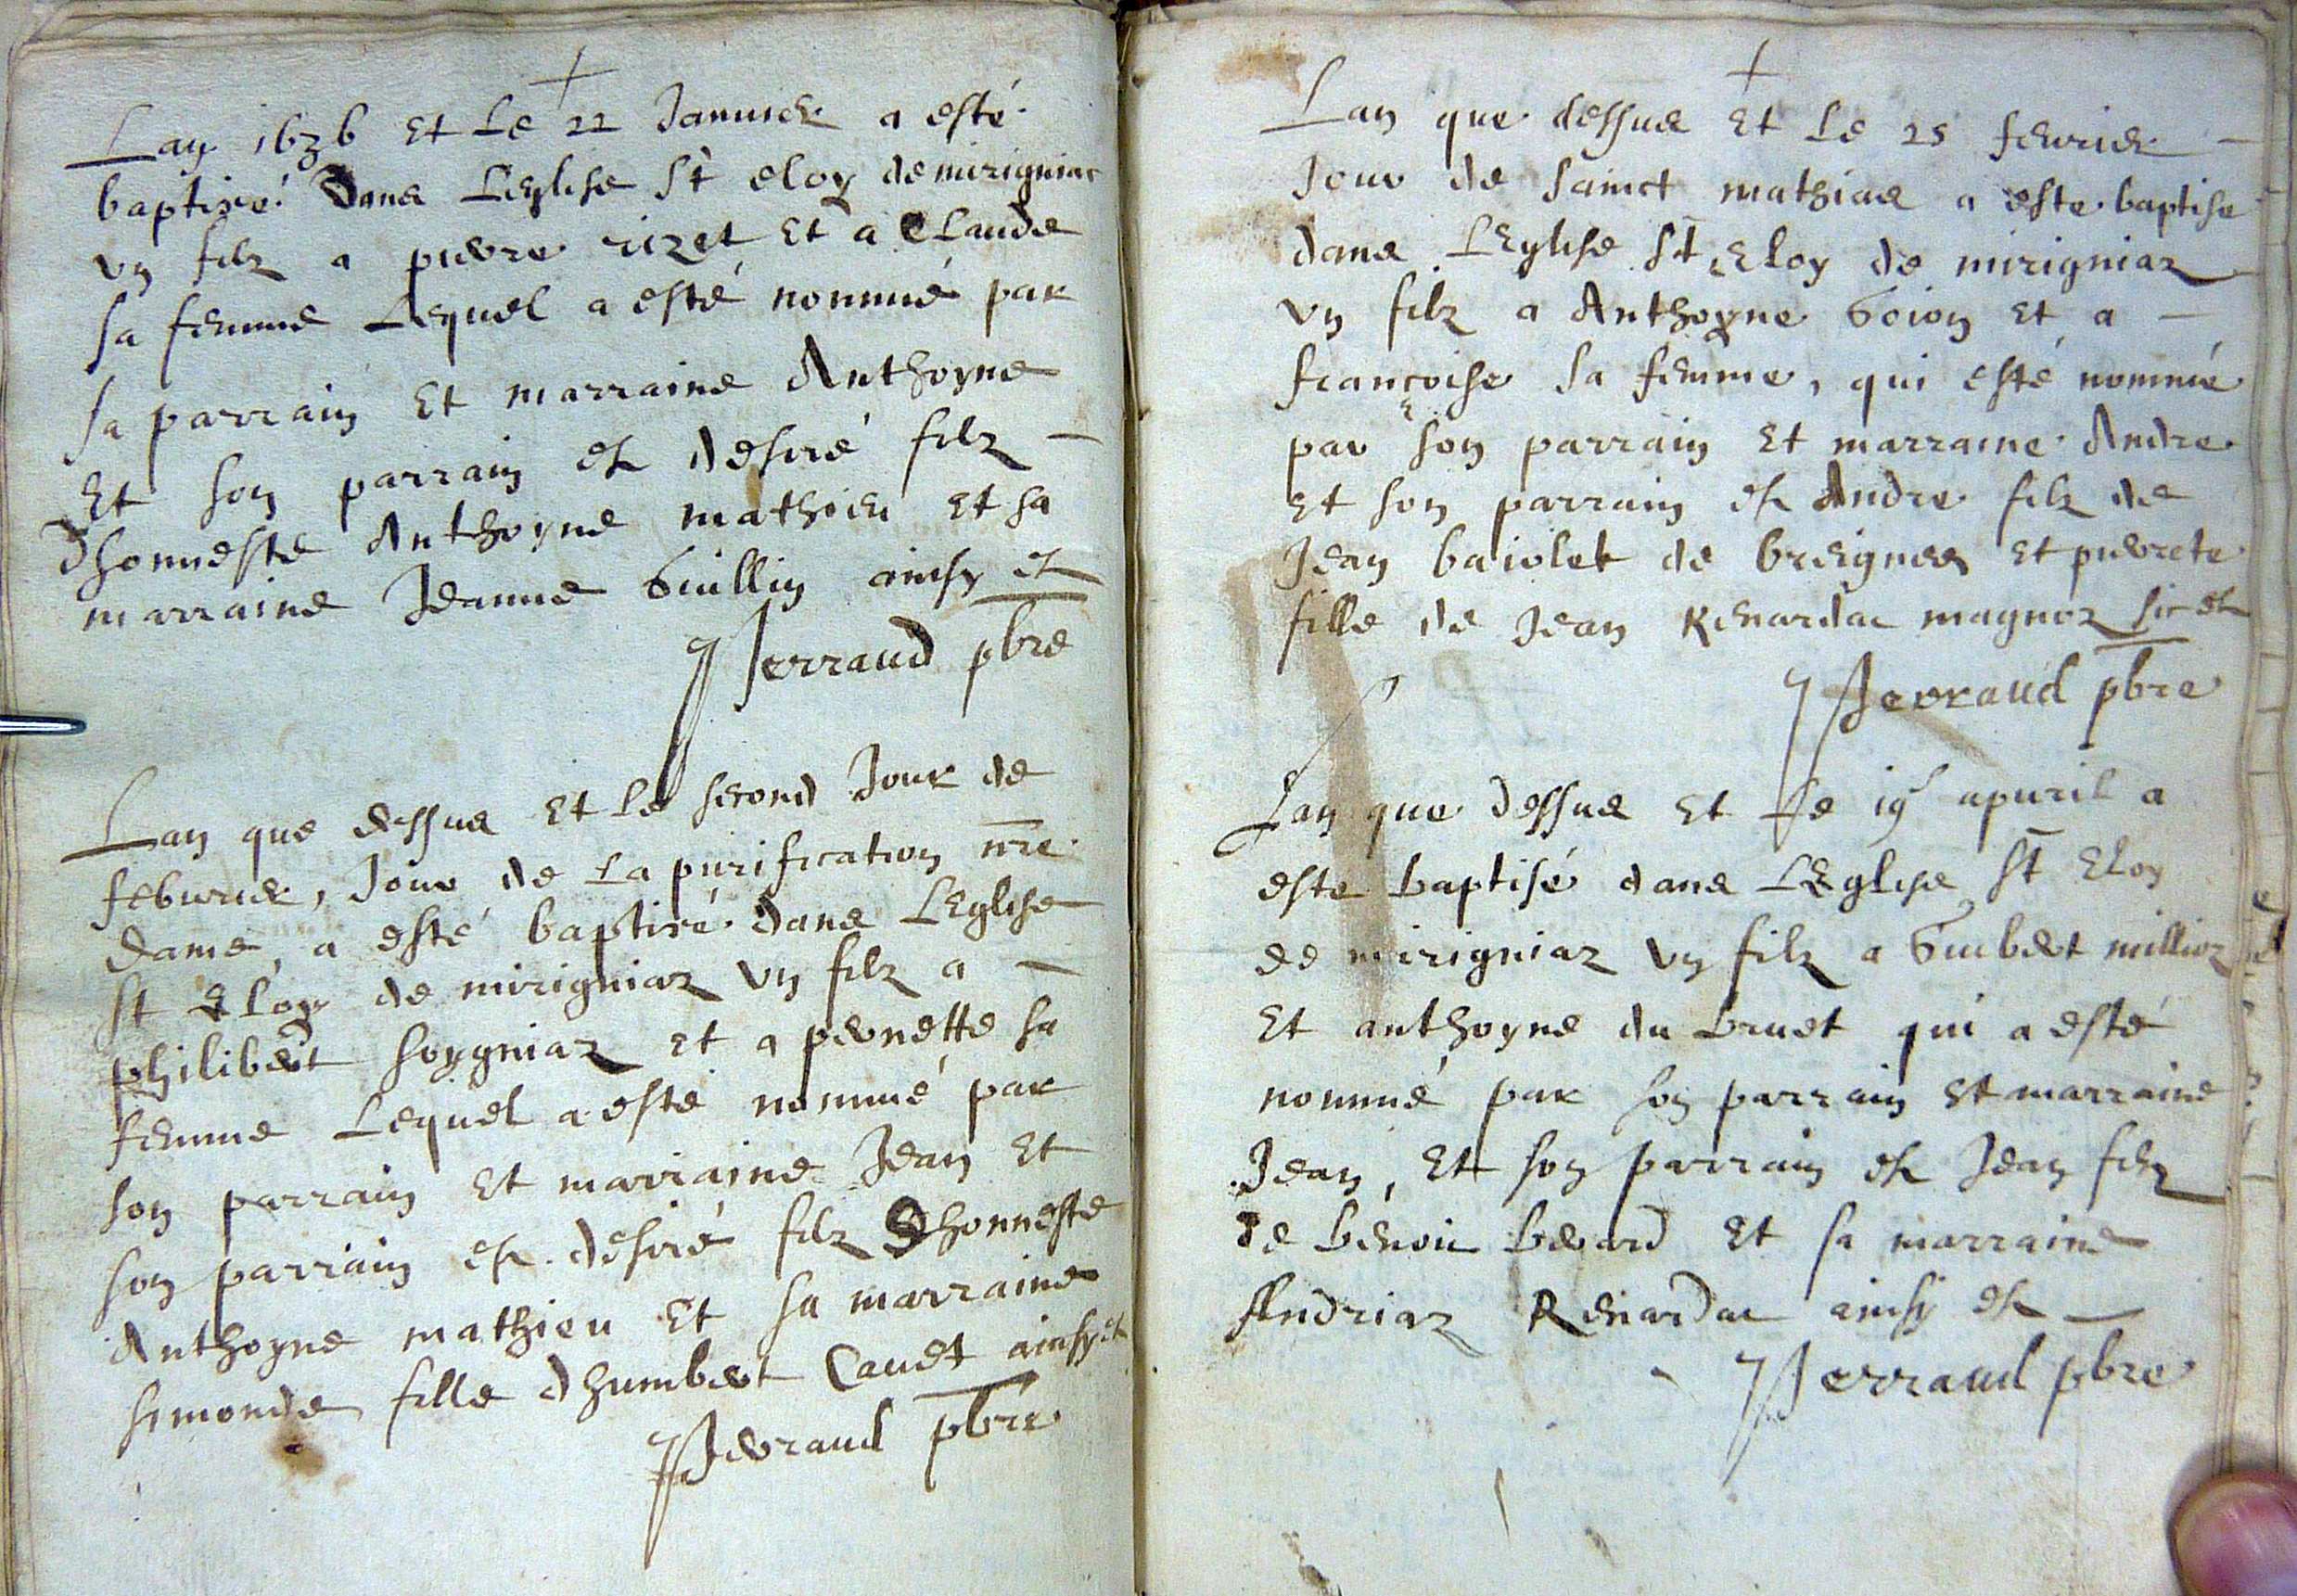 Lan 1636 et le 22 Januier a esté
baptisé dans Leglise St eloy de mirigniac
vn filz a pierre rizet et a Claude
sa femme Lequel a esté nommé par
sa parrain et marraine Anthoyne
Et son parrain est desiré filz
dhonneste Anthoyne mathieu et sa
marraine Jeanne Guillin ainsy est
Perraud pbre
Lan que dessus et le second Jour de
feburier, Jour de La purification nre
dame, a esté baptisé dans LEglise
St Eloy de mirigniaz vn filz a
philibert soygniaz et a pernette sa
femme Lequel a esté nommé par
son parrain et marraine Jean et
son parrain est desiré filz Dhonneste
Anthoyne mathieu et sa marraine
simonde fille dhumbert Cauet ainsy est
Perraud pbre
Lan que dessus et le 25 feurier
Jour de sainct mathias a este baptise
dans LEglise St Eloy de mirigniaz
vn filz a Anthoyne Goion et a
françoise sa femme, qui esté nommé
par son parrain et marraine Andre
et son parrain est Andre filz de
Jean baiolet de breignes et pierrete
fille de Jean Renardac magnoz sic est
Perraud pbre
Lan que dessus et le 19 apuril a
este baptisé dans LEglise St Eloy
de mirigniaz vn filz a Guibert millioz
Et anthoyne du bruet qui a esté
nommé par son parrain et marraine
Jean, Et son parrain est Jean filz
de benoit berard et sa marraine
Andriaz Renardac ainsy est
Perraud pbre